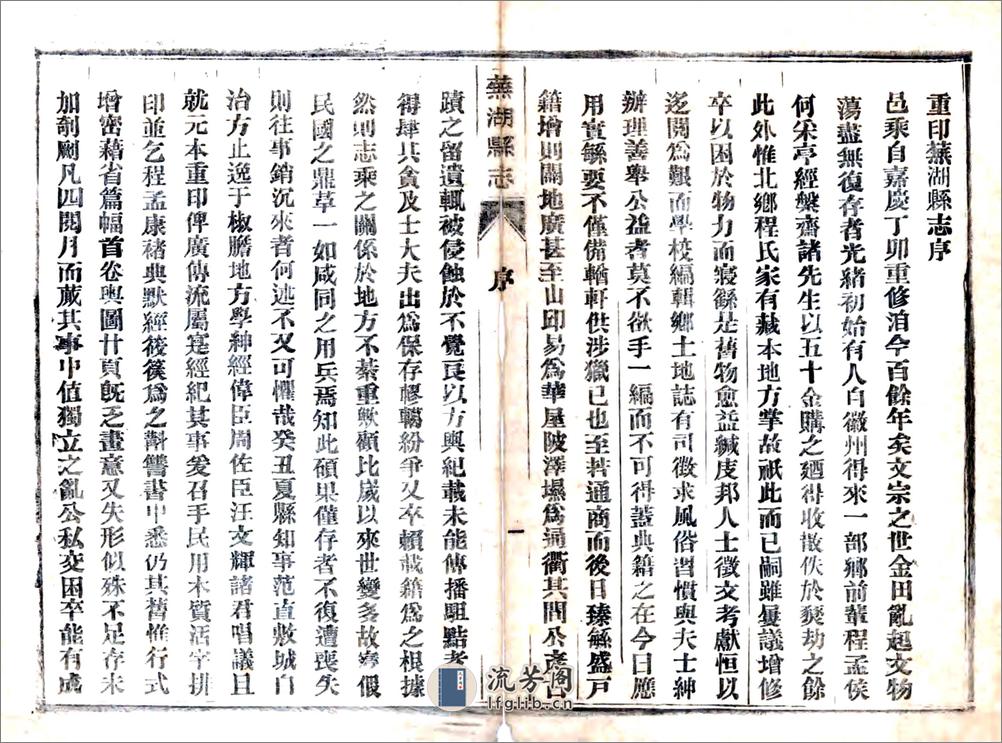 重印蕪湖縣志序
邑乘自嘉慶丁卯重修洎今百餘年矣文宗之世金田亂起文物
蕩盡無復存者光緒初始有人自徽州得來一部鄉前輩程孟侯
何宋亭經槃齋諸先生以五十金購之迺得收散佚於煨劫之餘
此外惟北鄉程氏家有藏本地方掌故祇此而已嗣雖屢議增修
卒以困於物力而寢繇是舊物愈益緘庋邦人士徵文考獻恒以
迄閱爲艱而學校編輯鄉土地誌有司徵求風俗習慣與夫士紳
辦理善舉公益者莫不欲手一編而不可得蓋典籍之在今日應
用實緐要不僅備輶軒供涉獵已也至若通商而後日臻緐盛戸
籍增則闢地廣甚至山邱易爲華屋陂澤濕爲通衢其間公產古
蕪湖縣志
序
一
蹟之留遺輒被侵蝕於不覺良以方輿紀載未能傳播駔點者
得肆其貪及士大夫出爲保存轇轕紛爭又卒賴載籍爲之根據
然則志乘之關係於地方不綦重歟顧比歲以來世變多故脫假
民國之鼎革一如咸同之用兵焉知此碩果僅存者不復遭喪失
則往事銷沉來者何述不又可懼哉癸丑夏縣知事范直敭城自
治方止逸于椒膽地方學紳經偉臣周佐臣汪文輝諸君唱議且
就元本重印俾廣傳流屬寔經紀其事爰召手民用木質活字排
印並乞程孟康褚典默經筱篌爲之斠讐書中悉仍其舊惟行式
增密藉省篇幅首卷輿圖廿頁旣乏畫意又失形似殊不足存未
加剞劂凡四閱月而蕆其事中值獨立之亂公私交困卒能有成
流芳阁
lfglib.cn